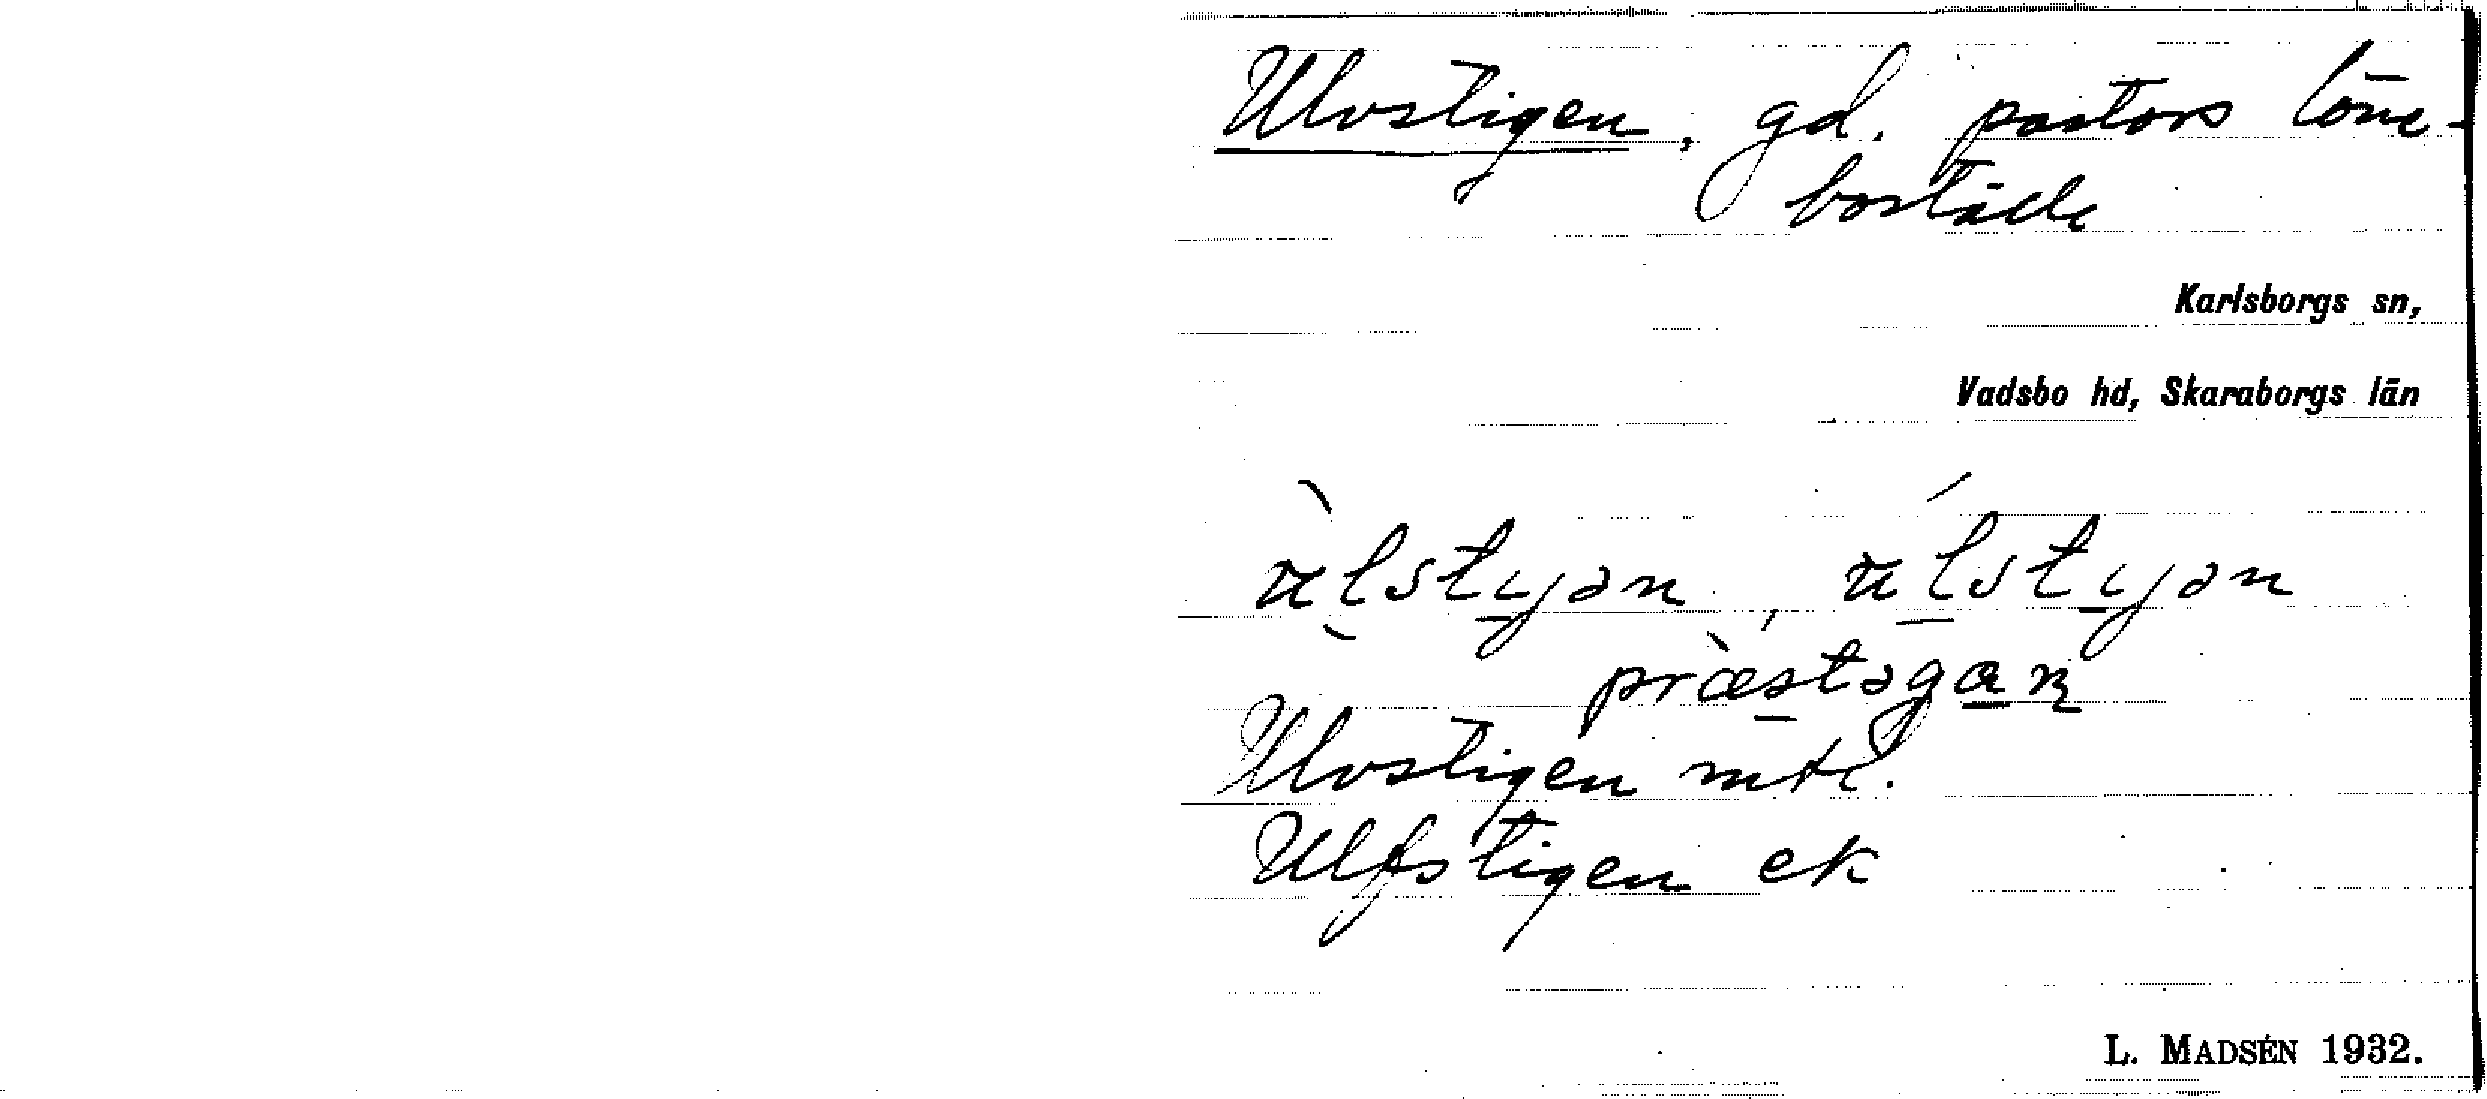 Ulvstigen, gd. pastors löne-
boställe
Karlsborgs sn,
Vadsbo hd, Skaraborgs län
ùlstyən, úlstyən
præ̀stəgan
Ulvstigen mtl.
Ulfstigen ek
L. MADSÉN 1932.